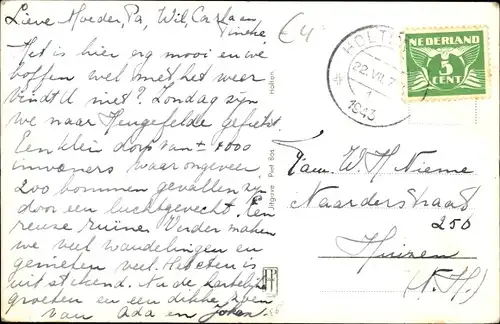 Lieve Moeder, Pa, Wil, Carla en
Tineke,
Het is hier erg mooi en we
boffen wel met het weer
vindt U niet? Zondag zijn
we naar Hengefelde gefietst
Een klein dorp van ± 4000
inwoners waar ongeveer
200 bommen gevallen zijn
door een luchtgevecht. Een
reuse ruïne. Verder maken
we veel wandelingen en
genieten veel. Het eten is
uitstekend. Nu de hartelijke
groeten en een dikke zoen
van Ada en Johan.
€4
Uitgave Piet Bos Holten
HOLTEN
22.VII.
1
1943
NEDERLAND
3
CENT
Fam. W. H. Nieme
Naarderstraat
250
Huizen
(N.H.)